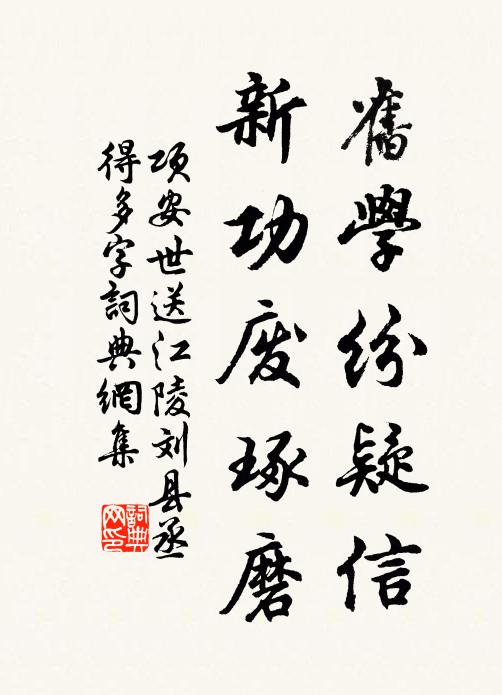 舊學紛疑信
新功废琢磨
项安世送江陵刘县丞
得多字詞典網集
詞典
网印